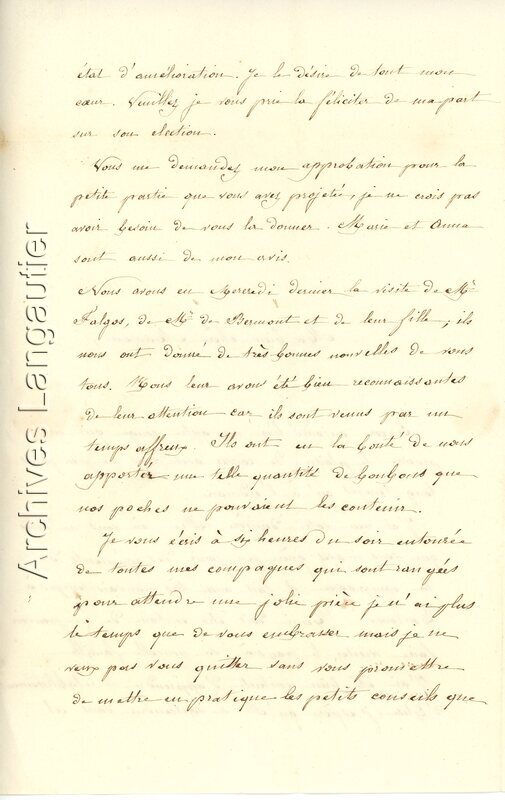 état d'amélioration. Je le désire de tout mon
cœur. Veuillez je vous prie la féliciter de ma part
sur son election.
Vous me demandez mon approbation pour la
petite partie que vous avez projetée, je ne crois pas
avoir besoin de vous la donner. Marie et Anna
sont aussi de mon avis.
Nous avons eu Mercredi dernier la visite de Mr
Falgos, de Mr de Bermont et de leur fille; ils
nous ont donné de très bonnes nouvelles de vous
tous. Nous leur avons été bien reconnaissantes
de leur attention car ils sont venus par un
temps affreux. Ils ont eu la bonté de nous
apporter une telle quantité de bonbons que
nos poches ne pouvaient les contenir.
Je vous écris à six heures du soir entourée
de toutes mes compagnes qui sont rangées
pour attendre une jolie prière je n'ai plus
le temps que de vous embrasser mais je ne
veux pas vous quitter sans vous promettre
de mettre en pratique les petits conseils que
Archives Langautier